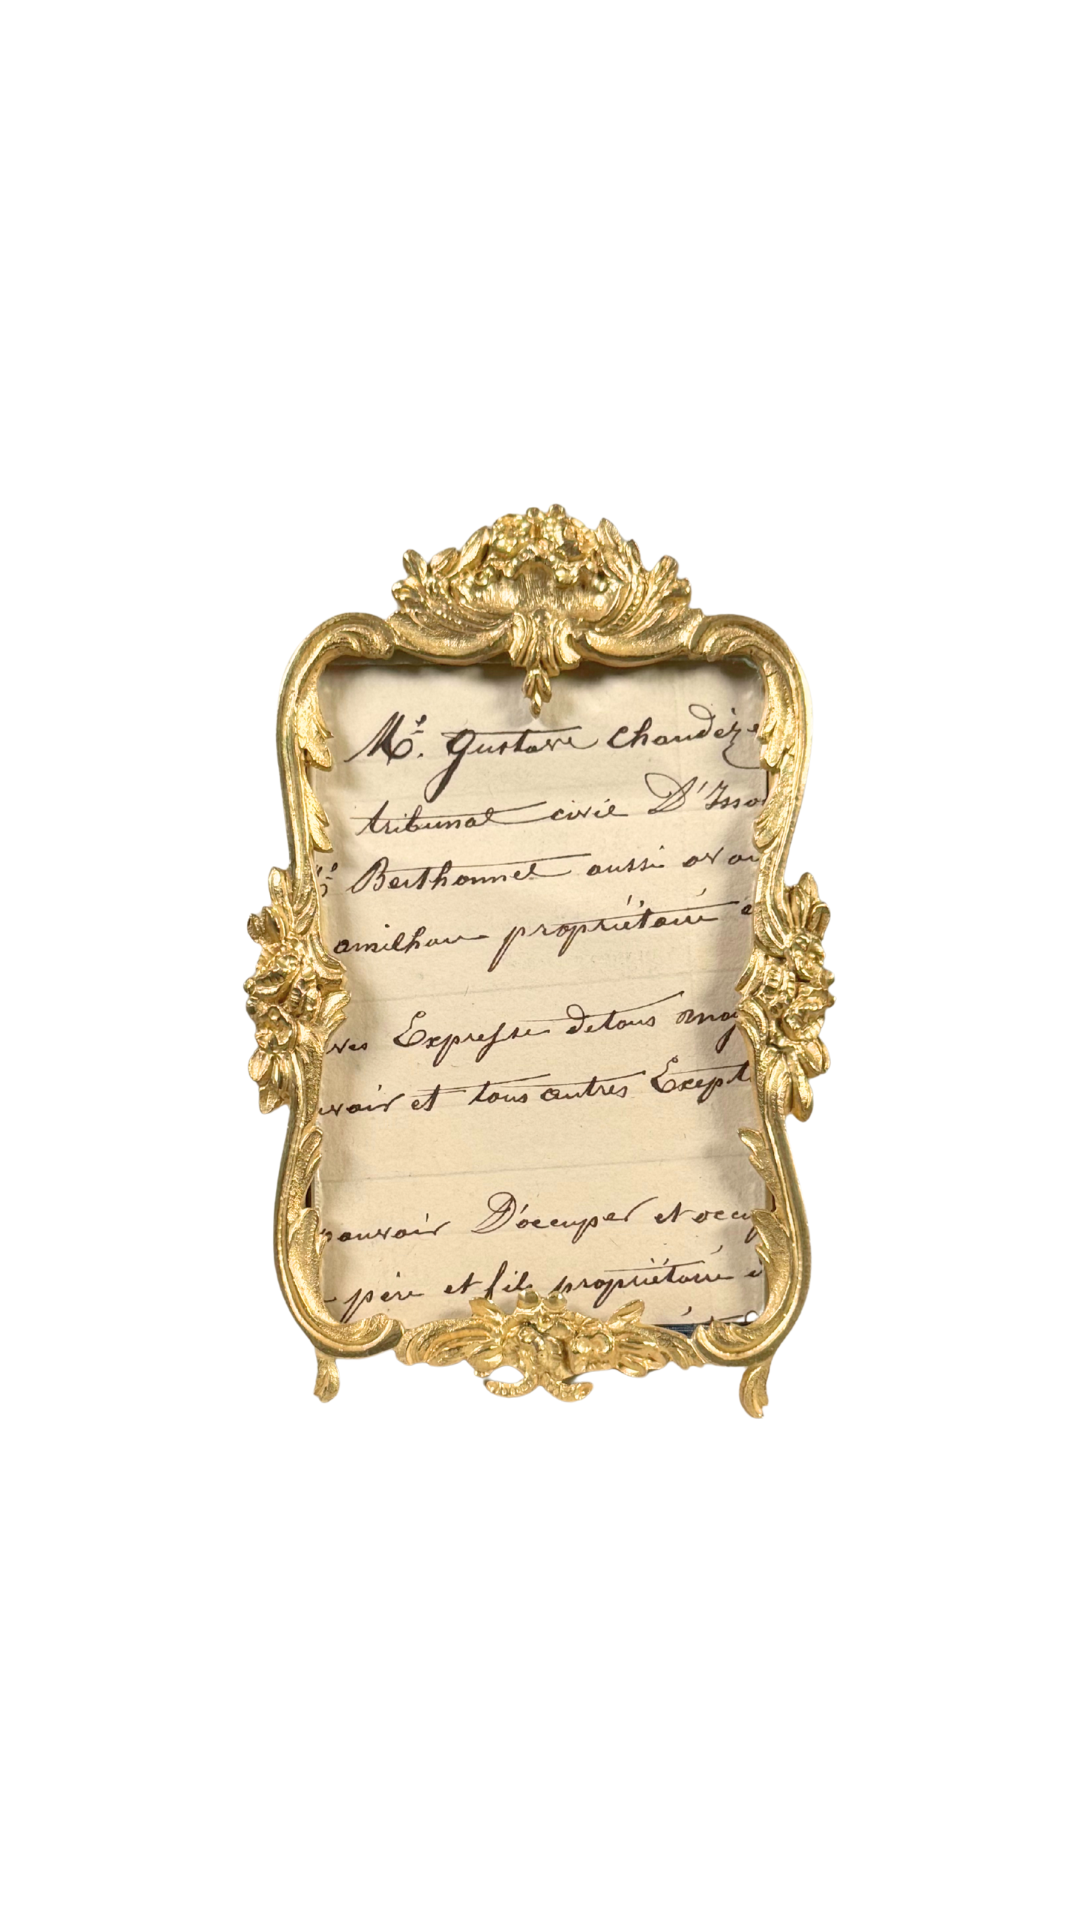 Me. Gustave Chaudèze
tribunal civil D'Isso
Berthonnet aussi avou
amilhau propriétaire
ves Expresse de tous moy
voir et tous autres Except
pouvoir D'occuper et occu
père et fils propriétaire